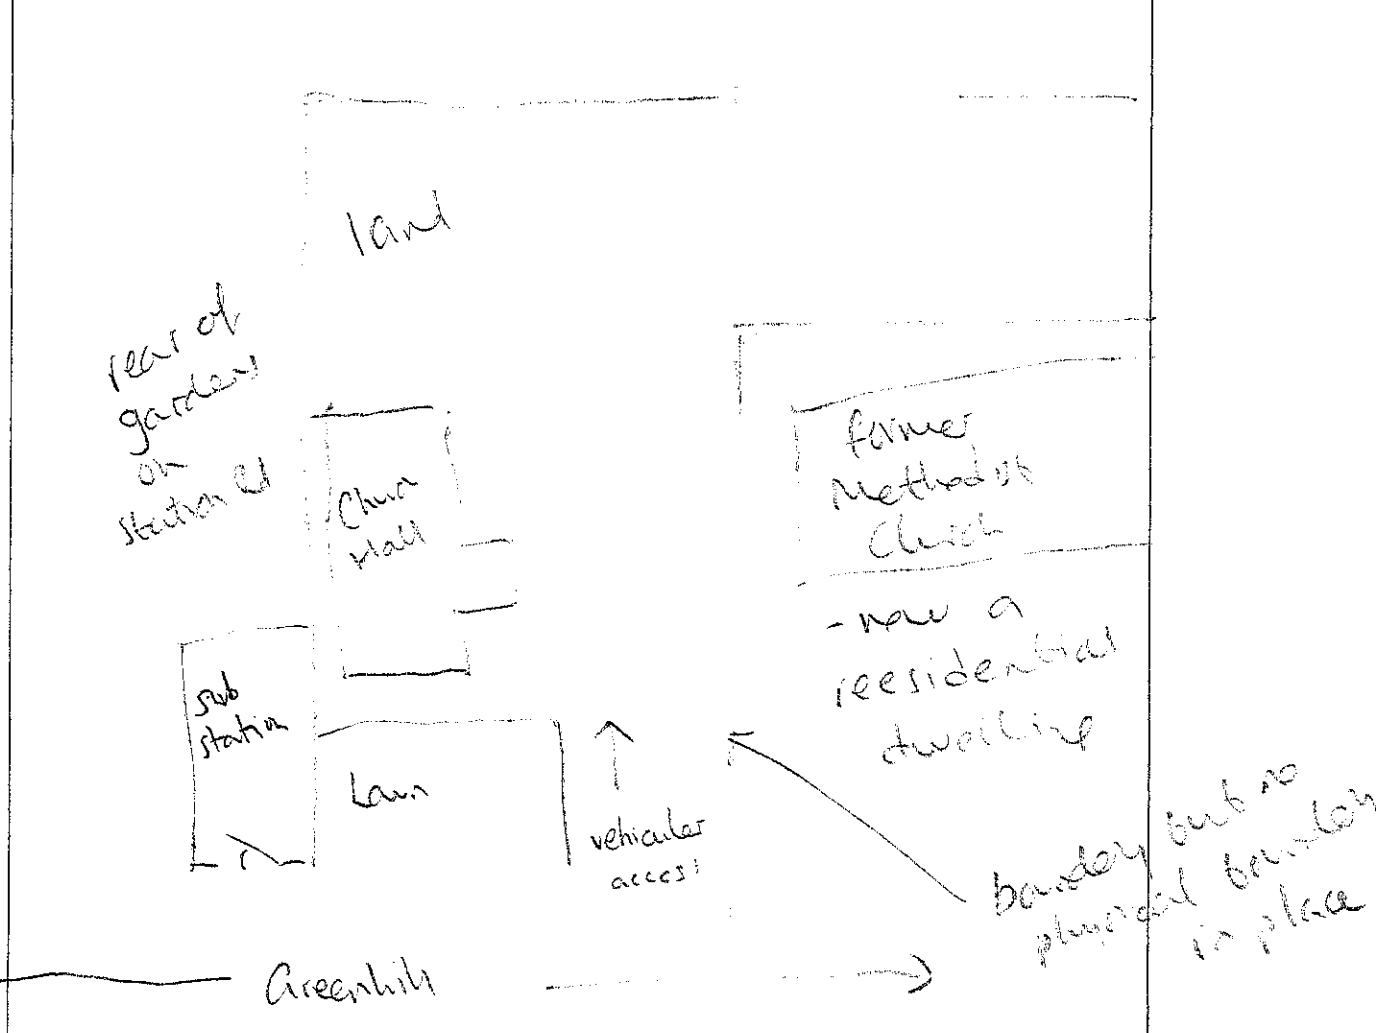 land
rear of
gardens
on
station rd
Church
Hall
former
Methodist
Church
- now a
reesidential
dwelling
sub
station
Lawn
vehicular
access
boundary but no
physical boundary
in place
Greenhill